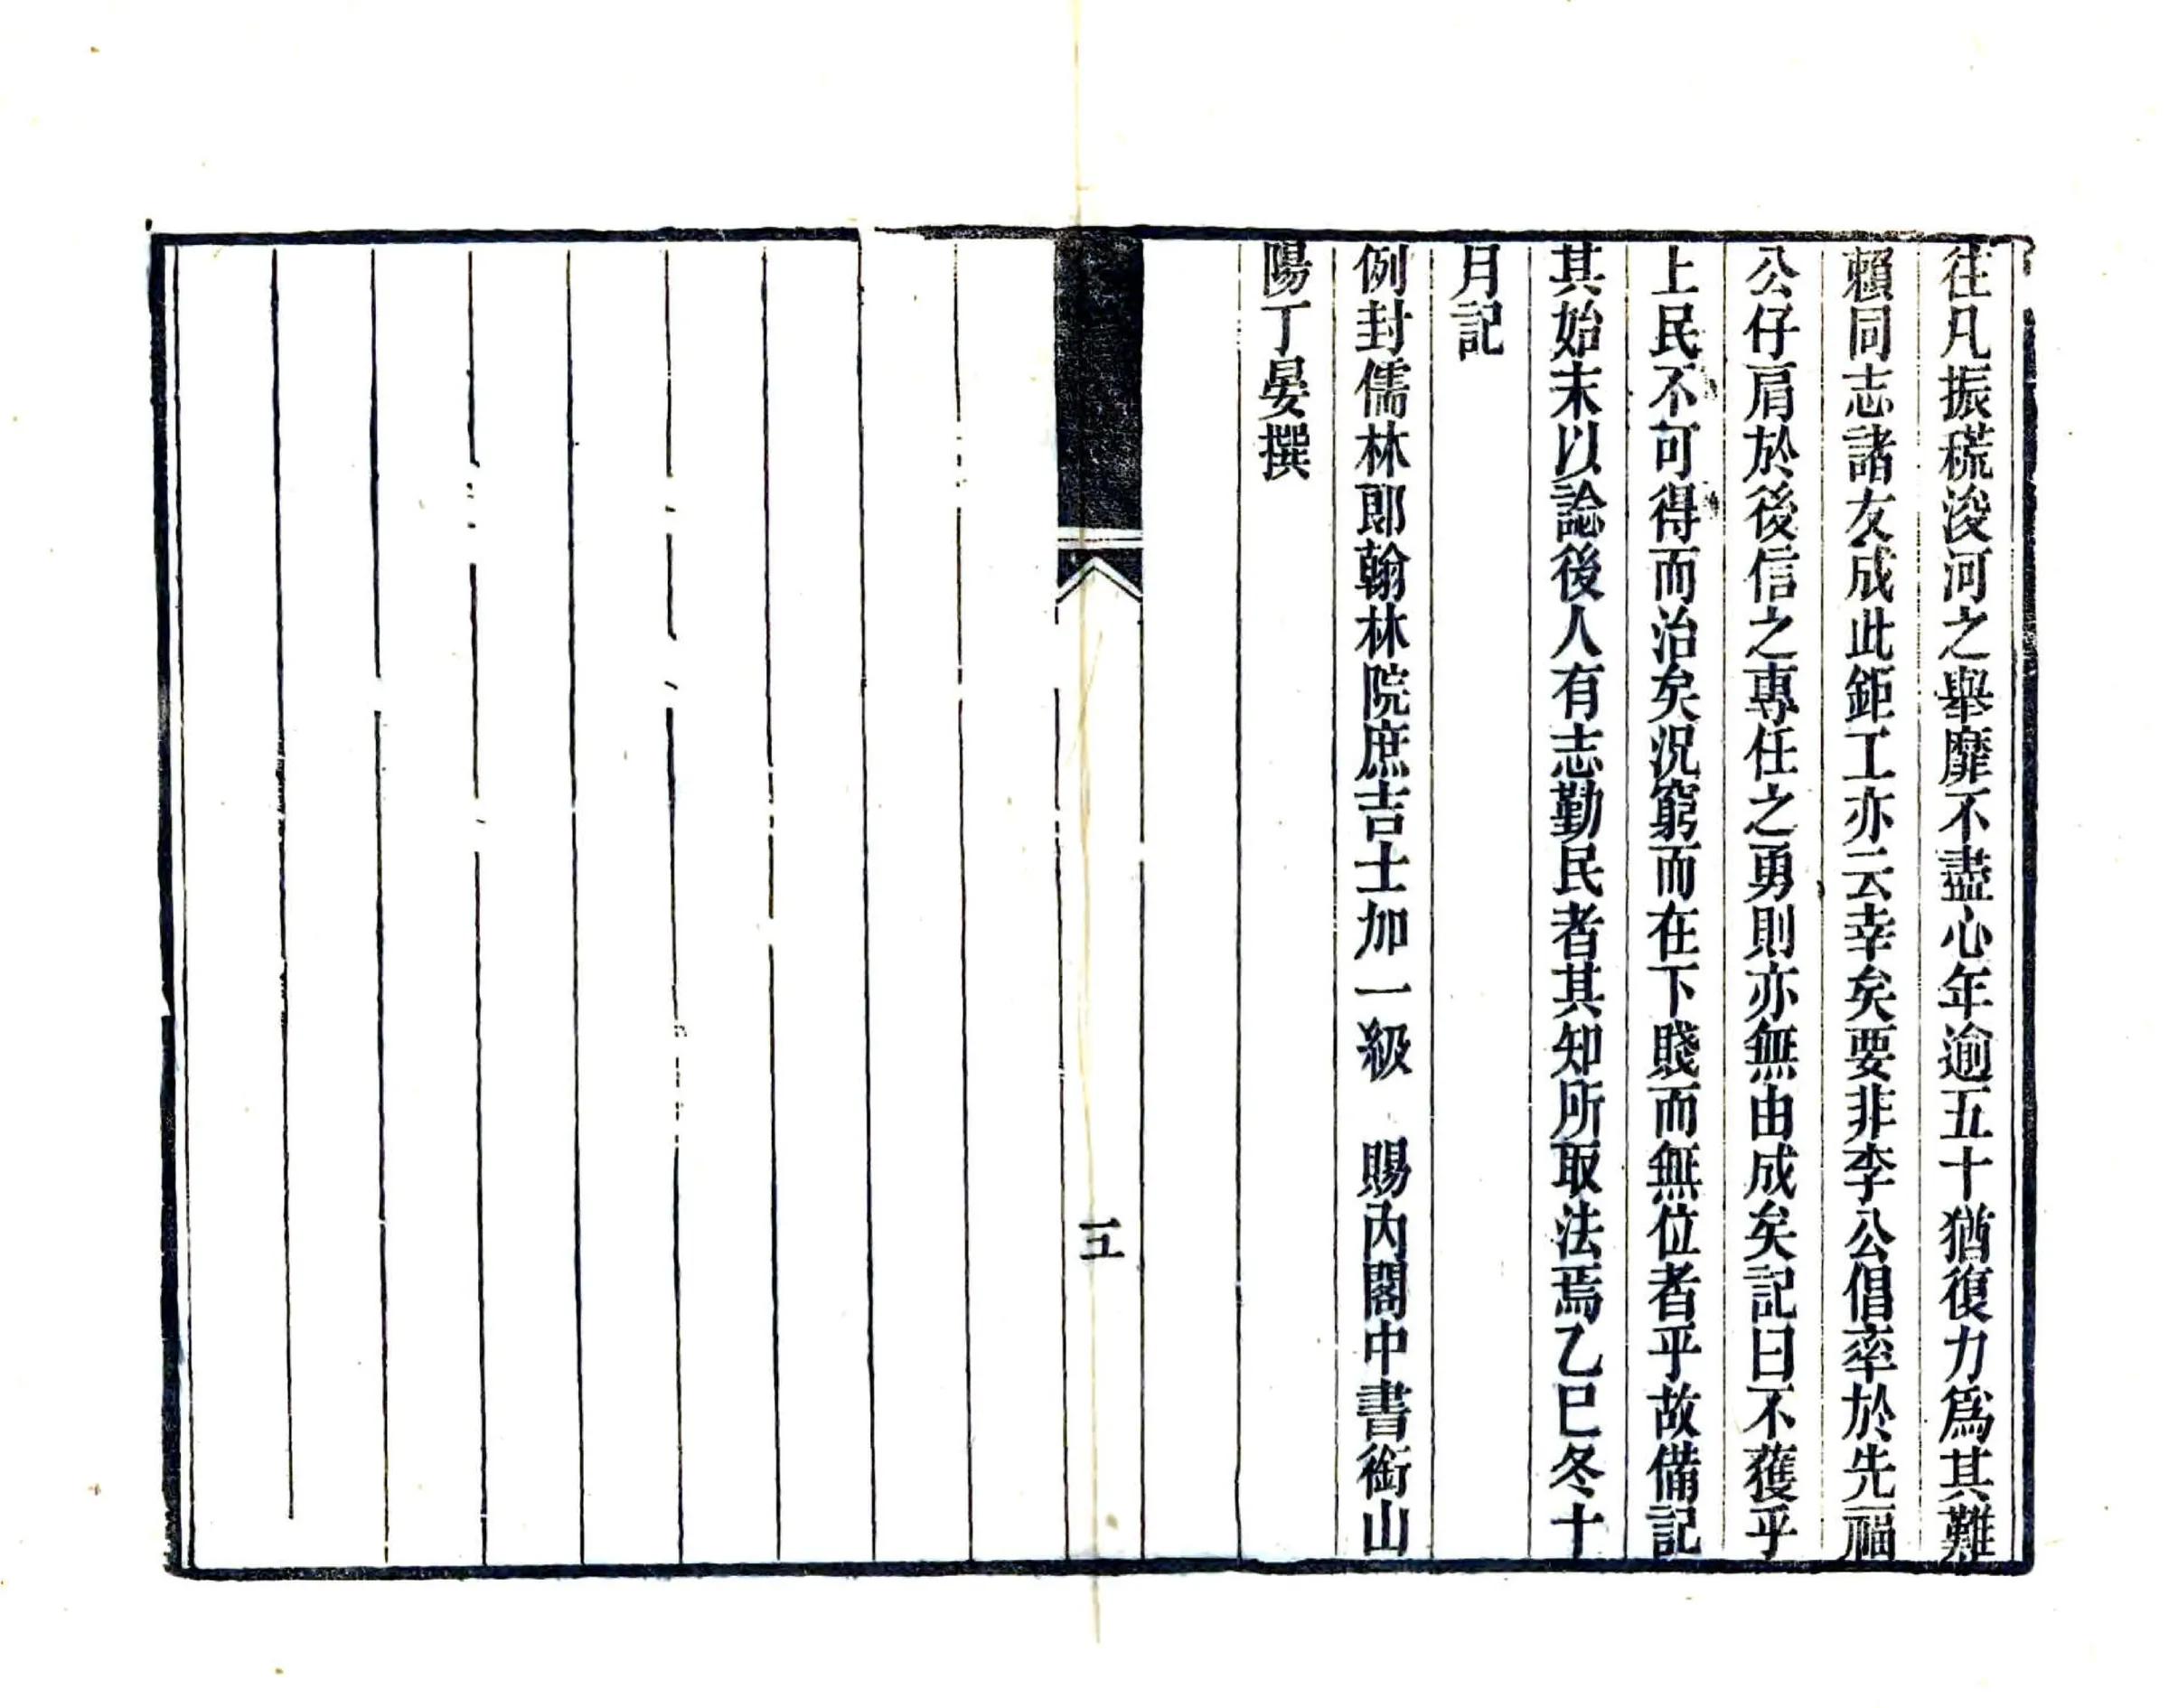 往凡振䅣浚河之舉靡不盡心年逾五十猶復力爲其難
賴同志諸友成此鉅工亦云幸矣要非李公倡率於先福
公仔肩於後信之專任之勇則亦無由成矣記曰不獲乎
上民不可得而治矣況窮而在下賤而無位者乎故備記
其始末以諗後人有志勤民者其知所取法焉乙巳冬十
月記
例封儒林郎翰林院庶吉士加一級　賜內閣中書銜山
陽丁晏撰
五